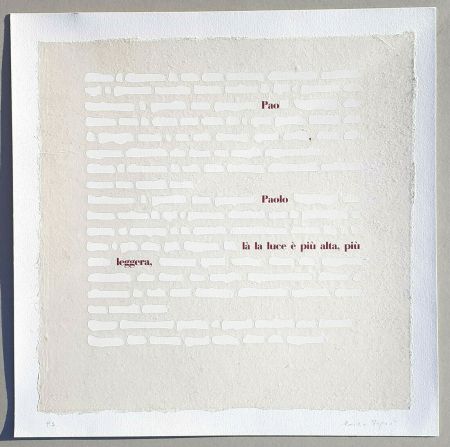 Pao
Paolo
là la luce è più alta, più
leggera,